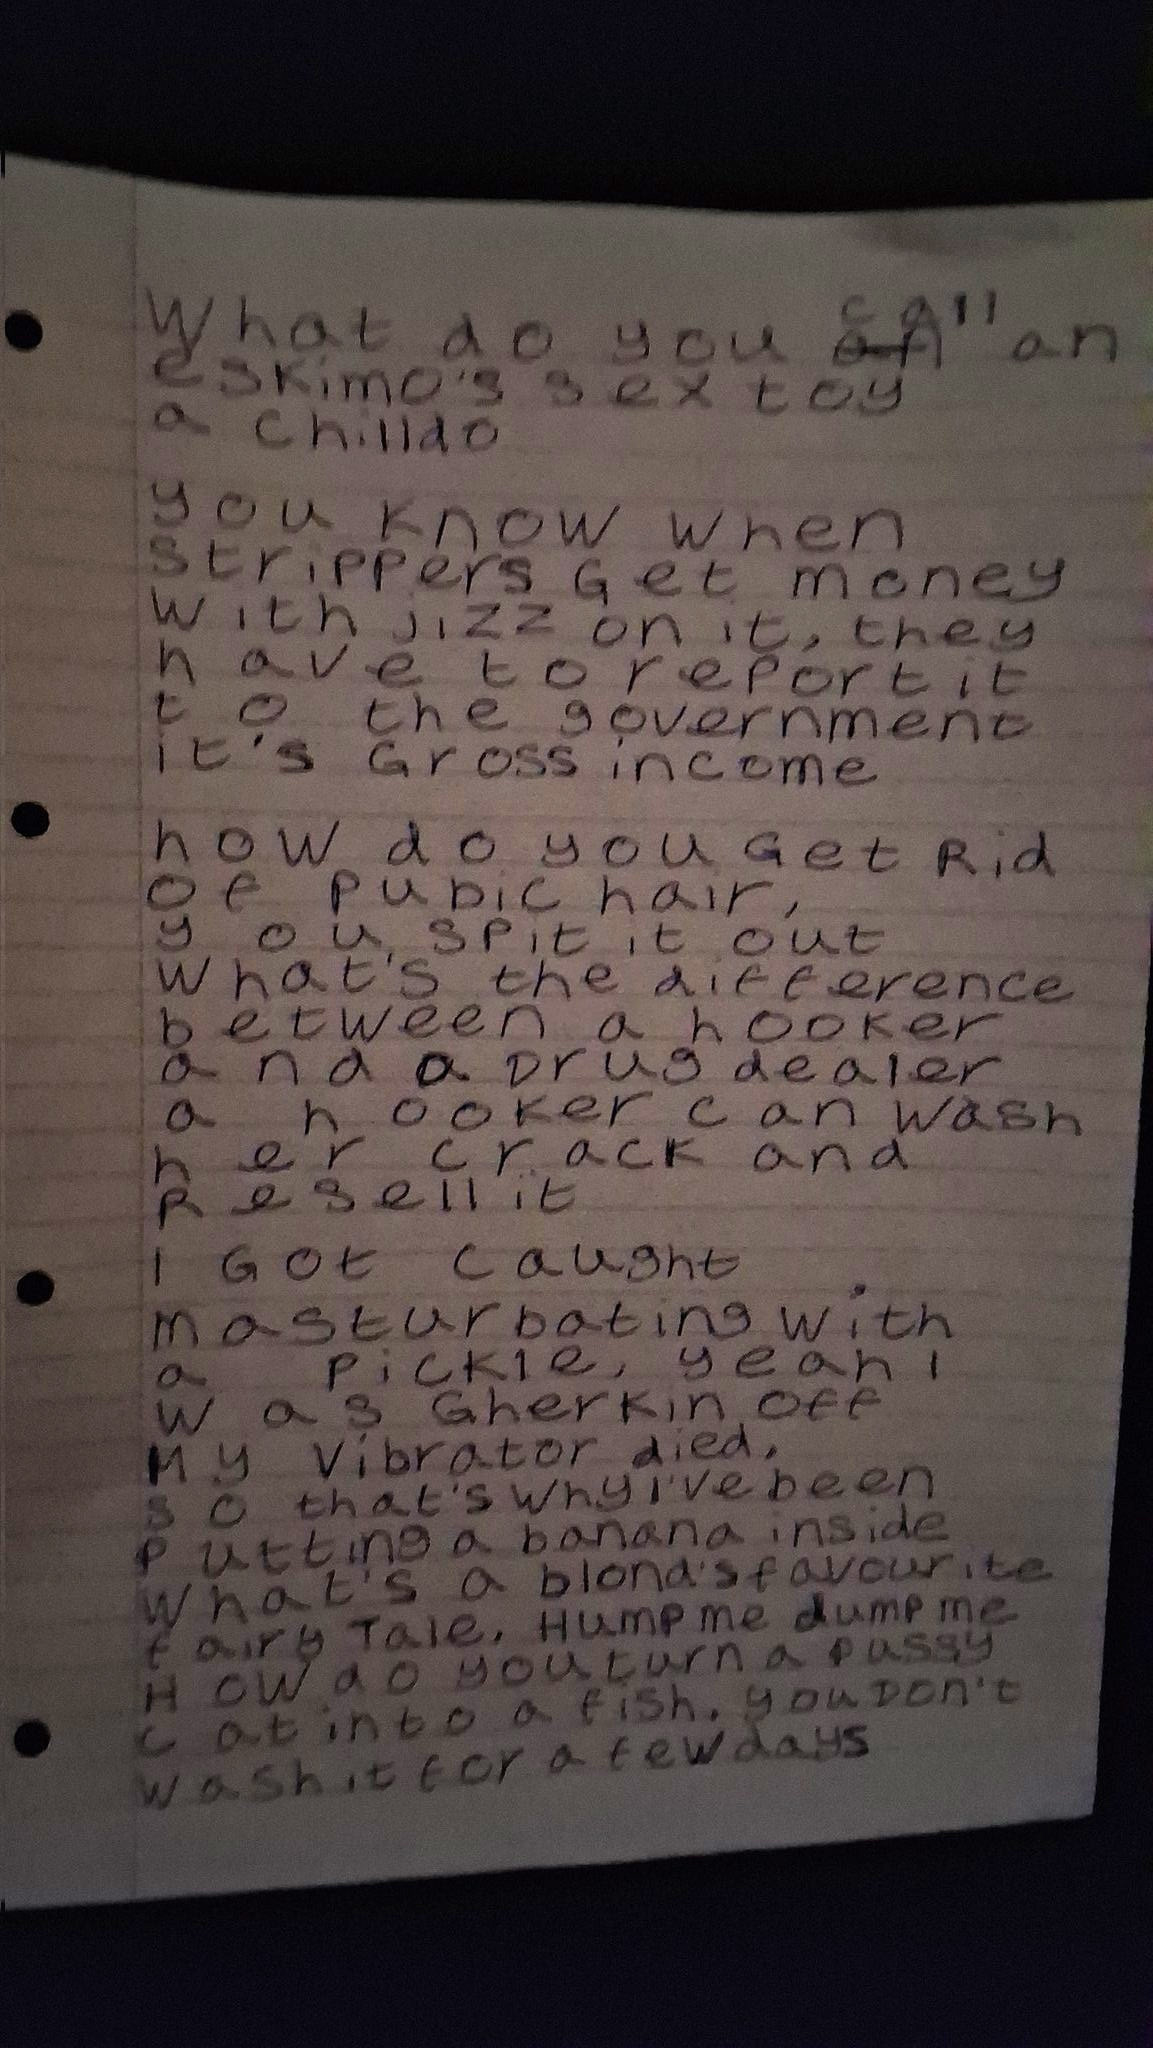 What do you call an
eskimo's sex toy
a Chilldo
you know when
strippers Get money
with jizz on it, they
have to report it
to the government
it's Gross income
how do you Get Rid
of pubic hair,
you, spit it out
What's the difference
between a hooker
and a Drug dealer
a hooker can wash
her crack and
Resell it
I Got caught
masturbating with
a pickle, yeah I
was Gherkin off
My Vibrator died,
so that's why i've been
putting a banana inside
What's a blond's favourite
fairy Tale, Hump me dump me
How do you turn a pussy
cat into a fish, you Don't
wash it for a few days